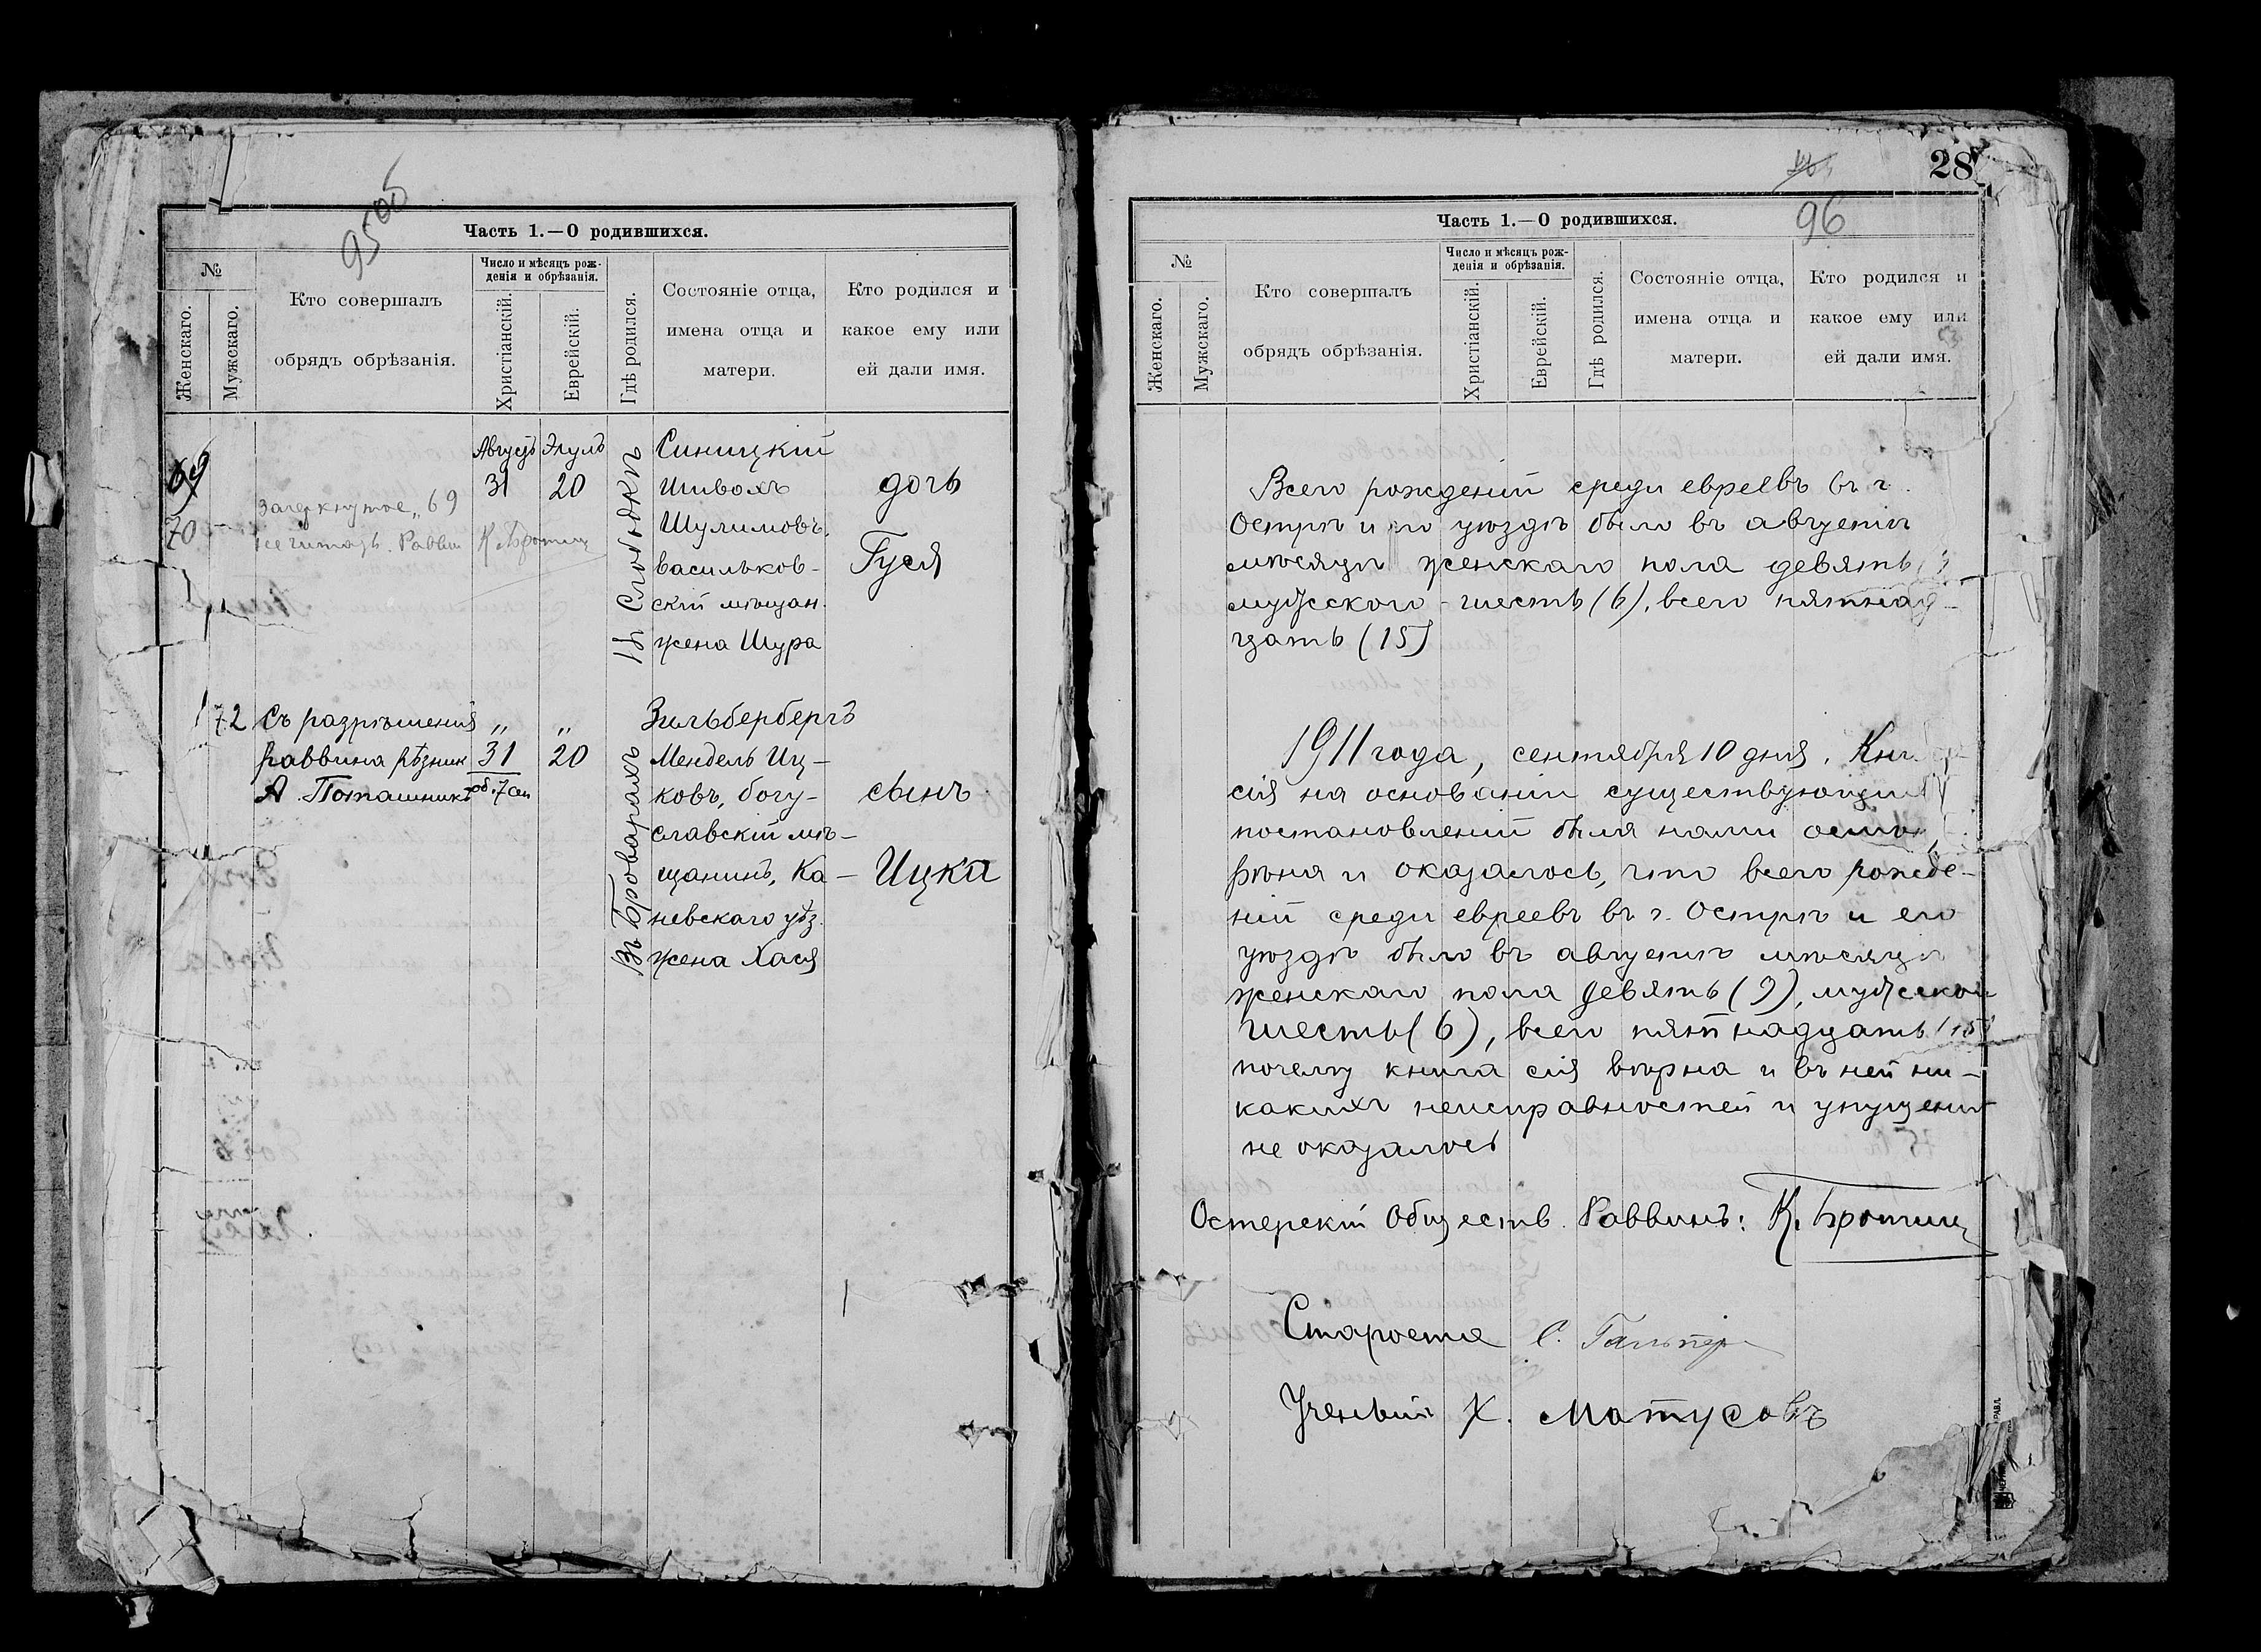 95 об
Часть 1.—О родившихся.
№
Женскаго.
Мужскаго.
Кто совершалъ
обрядъ обрѣзанія.
Число и мѣсяцъ рож-
денія и обрѣзанія.
Христіанскій.
Еврейскій.
Гдѣ родился.
Состояніе отца,
имена отца и
матери.
Кто родился и
какое ему или
ей дали имя.
69
70
Зачеркнутое „69
не читать. Раввин К. Бротин
Августъ
31
Элулъ
20
Въ Слободкѣ
Синицкій
Шивохъ
Шулимовъ,
васильков-
скій мѣщан.
жена Шура
дочь
Гуся
72
Съ разрѣшенія
раввина рѣзник
А. Поташникъ
„
31
об. 7 сен
„
20
Въ Броварахъ
Зильбербергъ
Мендель Иц-
ковъ, богу-
славскій мѣ-
щанинъ, Ка-
невскаго уѣз.
жена Хася
сынъ
Ицка
28
96
Часть 1.—О родившихся.
№
Женскаго.
Мужскаго.
Кто совершалъ
обрядъ обрѣзанія.
Число и мѣсяцъ рож-
денія и обрѣзанія.
Христіанскій.
Еврейскій.
Гдѣ родился.
Состояніе отца,
имена отца и
матери.
Кто родился и
какое ему или
ей дали имя.
Всего рожденій среди евреевъ въ г.
Острѣ и его уѣздѣ было въ августѣ
мѣсяцѣ женскаго пола девять
мужского - шесть (6), всего пятнад-
цать (15)
1911 года, сентября 10 дня.
сія на основаніи существующихъ
постановленій была нами осмот
рѣна и оказалось, что всего рожде-
ній среди евреевъ въ г. Острѣ и его
уѣздѣ было въ августѣ мѣсяцѣ
женскаго пола девять (9), мужской
шесть (6), всего пятнадцать (15)
почему книга сія вѣрна и въ ней ни-
какихъ неисправностей и упущеній
не оказалось
Остерскій Обществ. Раввинъ: К. Бротин
Староста С. Гальпер
Ученый Х. Матусовъ